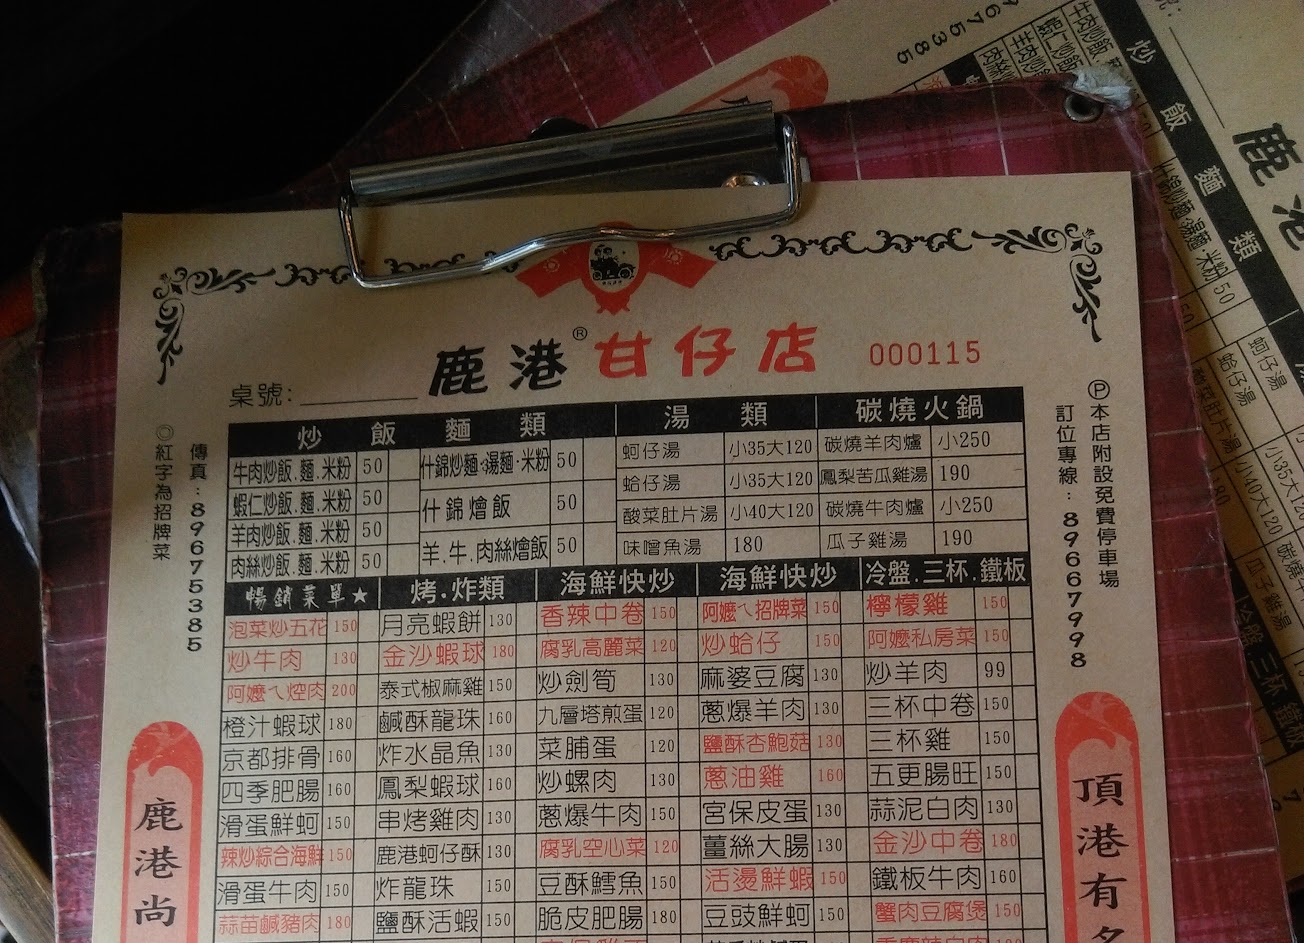 鹿港®甘仔店 000115
桌號:
Ⓟ本店附設免費停車場
訂位專線:89667998
傳真:89675385
◎紅字為招牌菜
炒飯麵類 湯類 碳燒火鍋
牛肉炒飯.麵.米粉 50 什錦炒麵.湯麵.米粉 50 蚵仔湯 小35大120 碳燒羊肉爐 小250
蝦仁炒飯.麵.米粉 50 什錦燴飯 50 蛤仔湯 小35大120 鳳梨苦瓜雞湯 190
羊肉炒飯.麵.米粉 50 羊.牛.肉絲燴飯 50 酸菜肚片湯 小40大120 碳燒牛肉爐 小250
肉絲炒飯.麵.米粉 50 味噌魚湯 180 瓜子雞湯 190
暢銷菜單★ 烤.炸類 海鮮快炒 海鮮快炒 冷盤.三杯.鐵板
泡菜炒五花 150 月亮蝦餅 130 香辣中卷 150 阿嬤ㄟ招牌菜 150 檸檬雞 150
炒牛肉 130 金沙蝦球 180 腐乳高麗菜 120 炒蛤仔 150 阿嬤私房菜 150
阿嬤ㄟ焢肉 200 泰式椒麻雞 150 炒劍筍 130 麻婆豆腐 130 炒羊肉 99
橙汁蝦球 180 鹹酥龍珠 160 九層塔煎蛋 120 蔥爆羊肉 130 三杯中卷 150
京都排骨 160 炸水晶魚 130 菜脯蛋 120 鹽酥杏鮑菇 130 三杯雞 150
四季肥腸 160 鳳梨蝦球 160 炒螺肉 130 蔥油雞 160 五更腸旺 150
滑蛋鮮蚵 150 串烤雞肉 130 蔥爆牛肉 150 宮保皮蛋 130 蒜泥白肉 130
辣炒綜合海鮮 150 鹿港蚵仔酥 130 腐乳空心菜 120 薑絲大腸 130 金沙中卷 180
滑蛋牛肉 150 炸龍珠 150 豆酥鱈魚 150 活燙鮮蝦 150 鐵板牛肉 160
蒜苗鹹豬肉 180 鹽酥活蝦 150 脆皮肥腸 180 豆豉鮮蚵 150 蟹肉豆腐煲 150
鹿港尚
頂港有名
炒飯麵類
鹿港